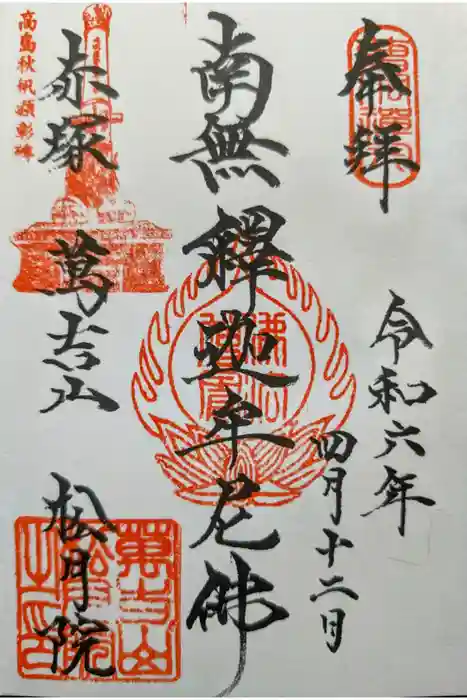 奉拝
令和六年
四月十二日
南無釋迦牟尼佛
高島秋帆顕彰碑
赤塚 萬吉山 松月院
萬吉山
松月院
之印